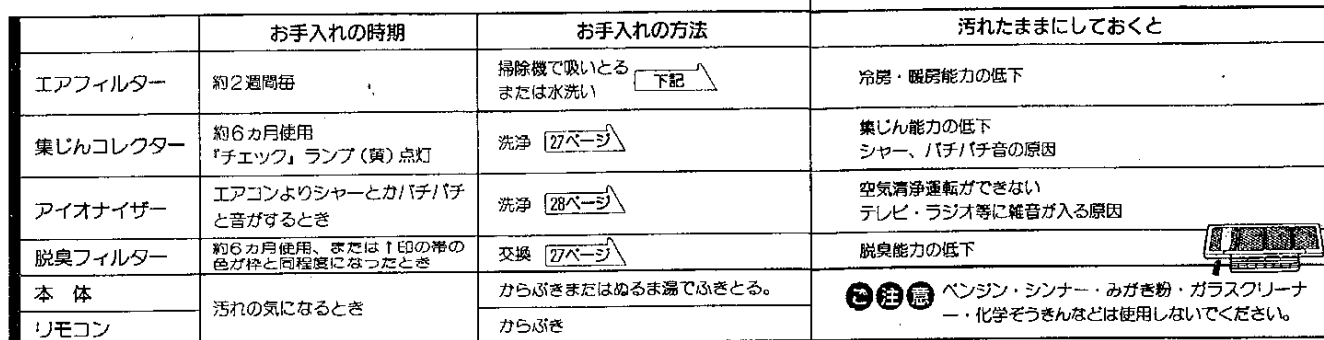 お手入れの時期 お手入れの方法 汚れたままにしておくと
エアフィルター 約2週間毎 掃除機で吸いとる
または水洗い 下記 冷房・暖房能力の低下
集じんコレクター 約6ヵ月使用
『チェック』ランプ(黄)点灯 洗浄 27ページ 集じん能力の低下
シャー、パチパチ音の原因
アイオナイザー エアコンよりシャーとかパチパチ
と音がするとき 洗浄 28ページ 空気清浄運転ができない
テレビ・ラジオ等に雑音が入る原因
脱臭フィルター 約6ヵ月使用、または↑印の帯の
色が枠と同程度になったとき 交換 27ページ 脱臭能力の低下
本 体 汚れの気になるとき からぶきまたはぬるま湯でふきとる。
リモコン からぶき
ご注意 ベンジン・シンナー・みがき粉・ガラスクリーナ
ー・化学ぞうきんなどは使用しないでください。